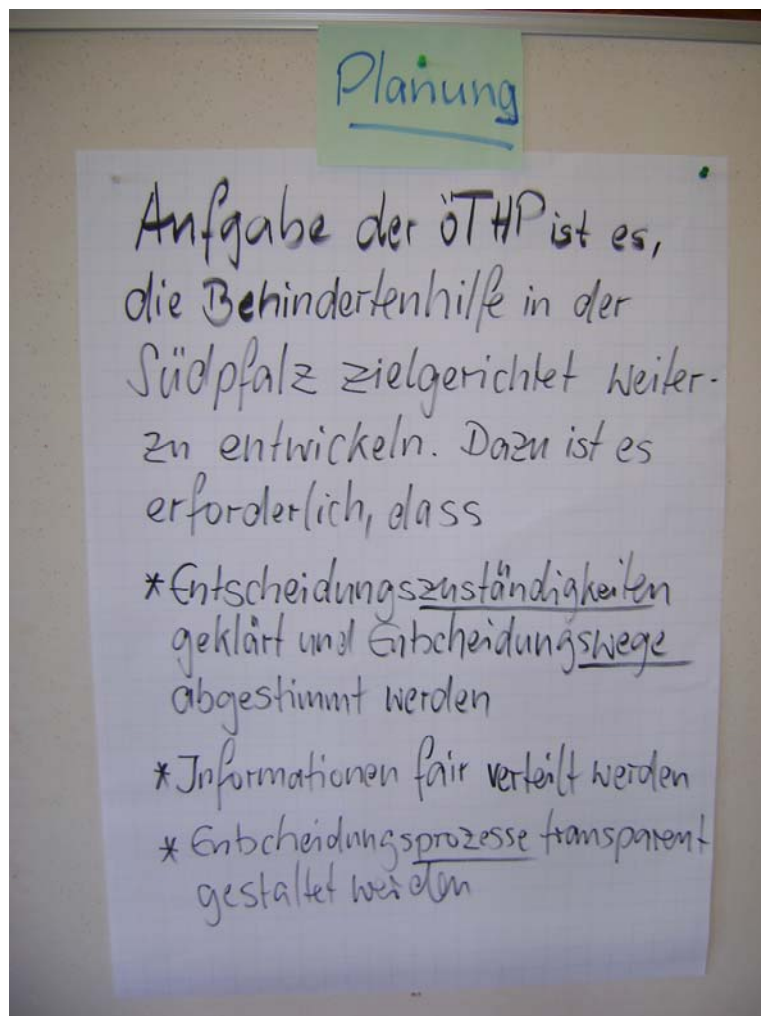 Planung
Aufgabe der öTHP ist es,
die Behindertenhilfe in der
Südpfalz zielgerichtet weiter-
zu entwickeln. Dazu ist es
erforderlich, dass
* Entscheidungszuständigkeiten
geklärt und Entscheidungswege
abgestimmt werden
* Informationen fair verteilt werden
* Entscheidungsprozesse transparent
gestaltet werden